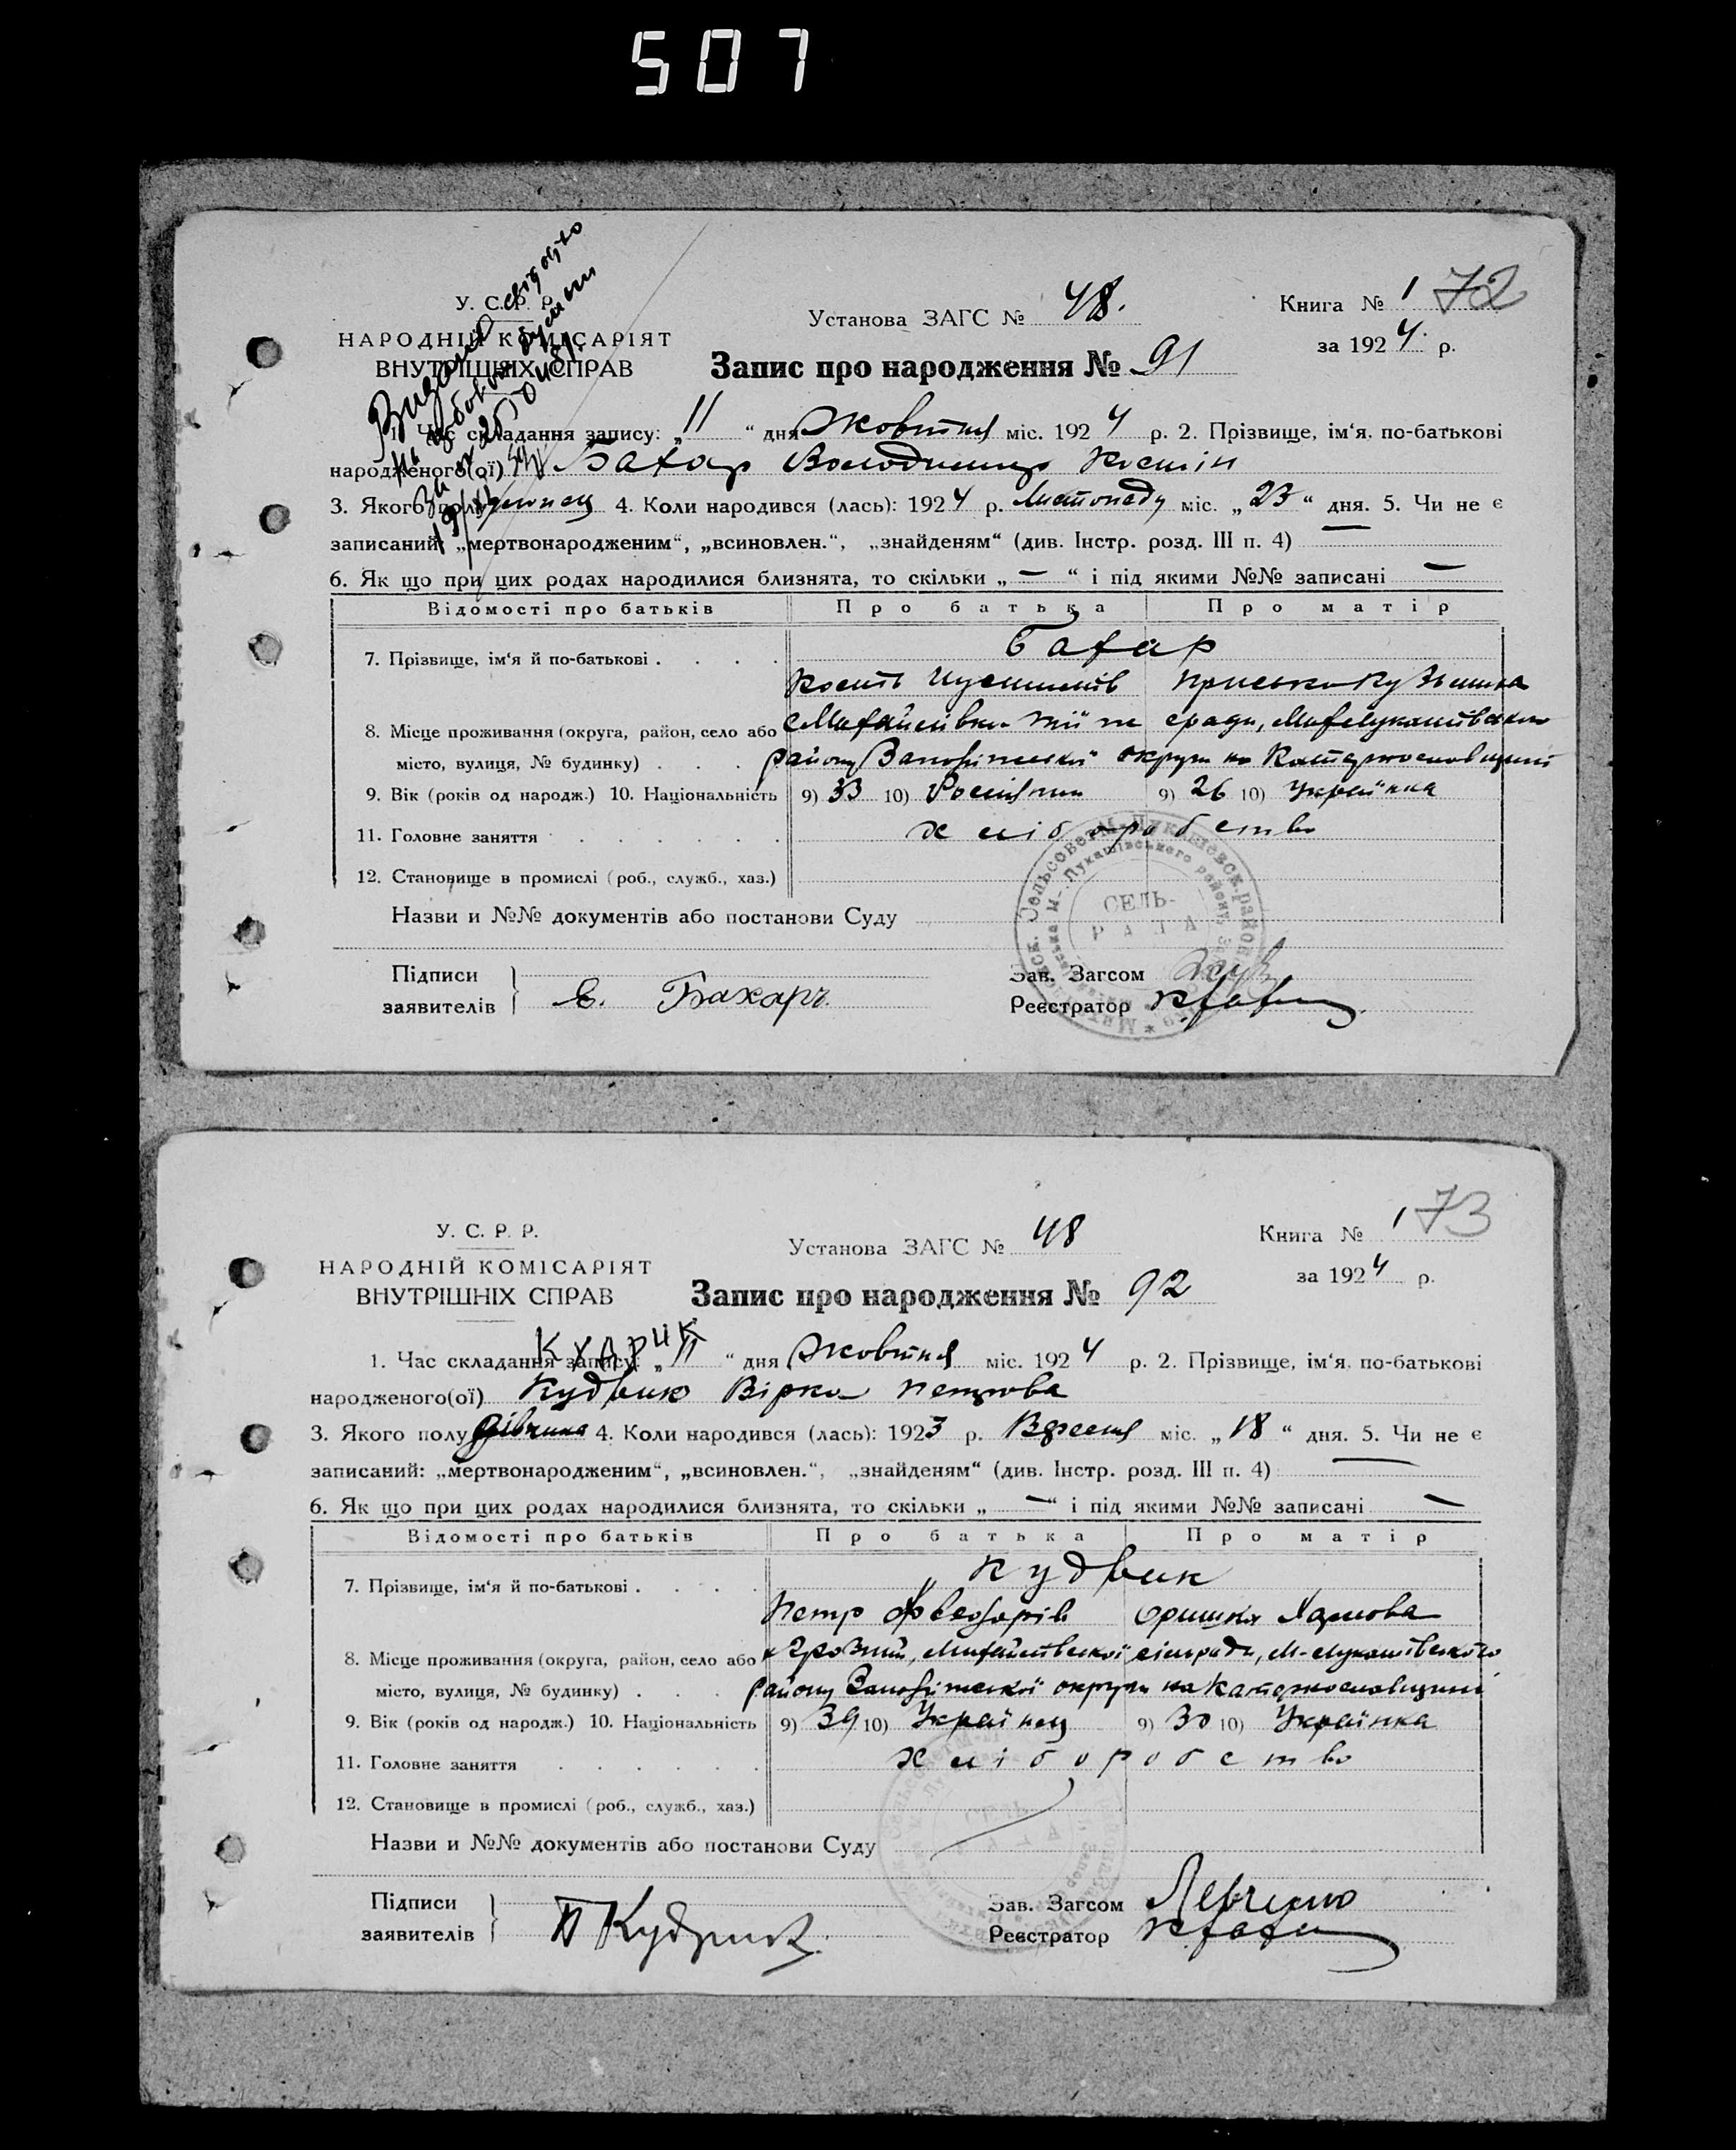 507
У. С. Р. Р.
НАРОДНІЙ КОМІСАРІЯТ
ВНУТРІШНІХ СПРАВ
Установа ЗАГС № 48.
Книга № 1 72
за 1924 р.
Запис про народження № 91
1. Час складання запису: „11“ дня Жовтня міс. 1924 р. 2. Прізвище, ім'я, по-батькові
народженого(ої) Бахар Володимир Костін
3. Якого полу 4. Коли народився (лась): 1924 р. Листопаду міс. „23“ дня. 5. Чи не є
записаний: „мертвонародженим“, „всиновлен.“, „знайденям“ (див. Інстр. розд. III п. 4) —
6. Як що при цих родах народилися близнята, то скільки „—“ і під якими №№ записані —
Відомості про батьків Про батька Про матір
7. Прізвище, ім'я й по-батькові . . . . Бахар
Кость Пріська
8. Місце проживання (округа, район, село або
місто, вулиця, № будинку) . . . району Запоріжської округи на Катеринославщині
9. Вік (років од народж.) 10. Національність 9) 33 10) Росіянин 9) 26 10) Українка
11. Головне заняття . . . . . . хліборобство
12. Становище в промислі (роб., служб., хаз.)
СЕЛЬ-
РАДА
Назви и №№ документів або постанови Суду
Підписи
заявителів Є. Бахаръ
Зав. Загсом
Реєстратор
У. С. Р. Р.
НАРОДНІЙ КОМІСАРІЯТ
ВНУТРІШНІХ СПРАВ
Установа ЗАГС № 48
Книга № 1 73
за 1924 р.
Запис про народження № 92
1. Час складання запису: „11“ дня Жовтня міс. 1924 р. 2. Прізвище, ім'я, по-батькові
народженого(ої) Кудрик Вірка Петрова
3. Якого полу дівчина 4. Коли народився (лась): 1923 р. Вересня міс. „18“ дня. 5. Чи не є
записаний: „мертвонародженим“, „всиновлен.“, „знайденям“ (див. Інстр. розд. III п. 4) —
6. Як що при цих родах народилися близнята, то скільки „—“ і під якими №№ записані —
Відомості про батьків Про батька Про матір
7. Прізвище, ім'я й по-батькові . . . . Кудрик
Петр Оришка Карпова
8. Місце проживання (округа, район, село або Михайлівської сільради, М-Лукашівського
місто, вулиця, № будинку) . . . району Запоріжської округи на Катеринославщині
9. Вік (років од народж.) 10. Національність 9) 39 10) Українец 9) 30 10) Українка
11. Головне заняття . . . . . . хліборобство
12. Становище в промислі (роб., служб., хаз.)
Назви и №№ документів або постанови Суду
Підписи
заявителів П Кудрик
Зав. Загсом Левченко
Реєстратор